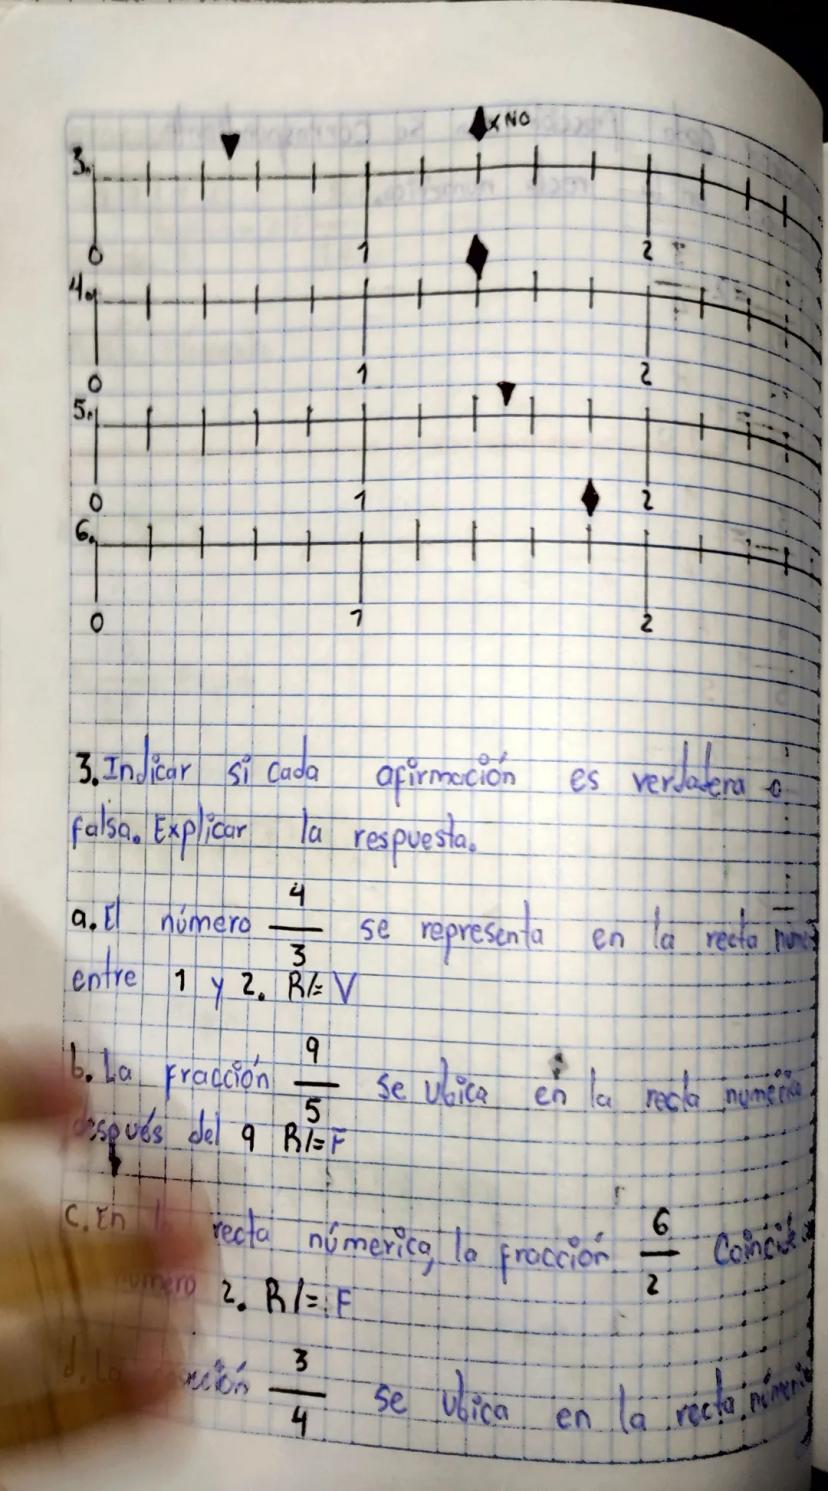 3.
x NO
0 1 2
4.
0 1 2
5.
0 1 2
6.
0 1 2
3. Indicar si cada afirmación es verdadera o
falsa. Explicar la respuesta.
a. El número 4/3 se representa en la recta
entre 1 y 2. R/= V
b. La fracción 9/5 se ubica en la recta
después del 9 R/= F
c. En recta númerica, la fracción 6/2
número 2. R/= F
d. La 3/4 se ubica en la recta